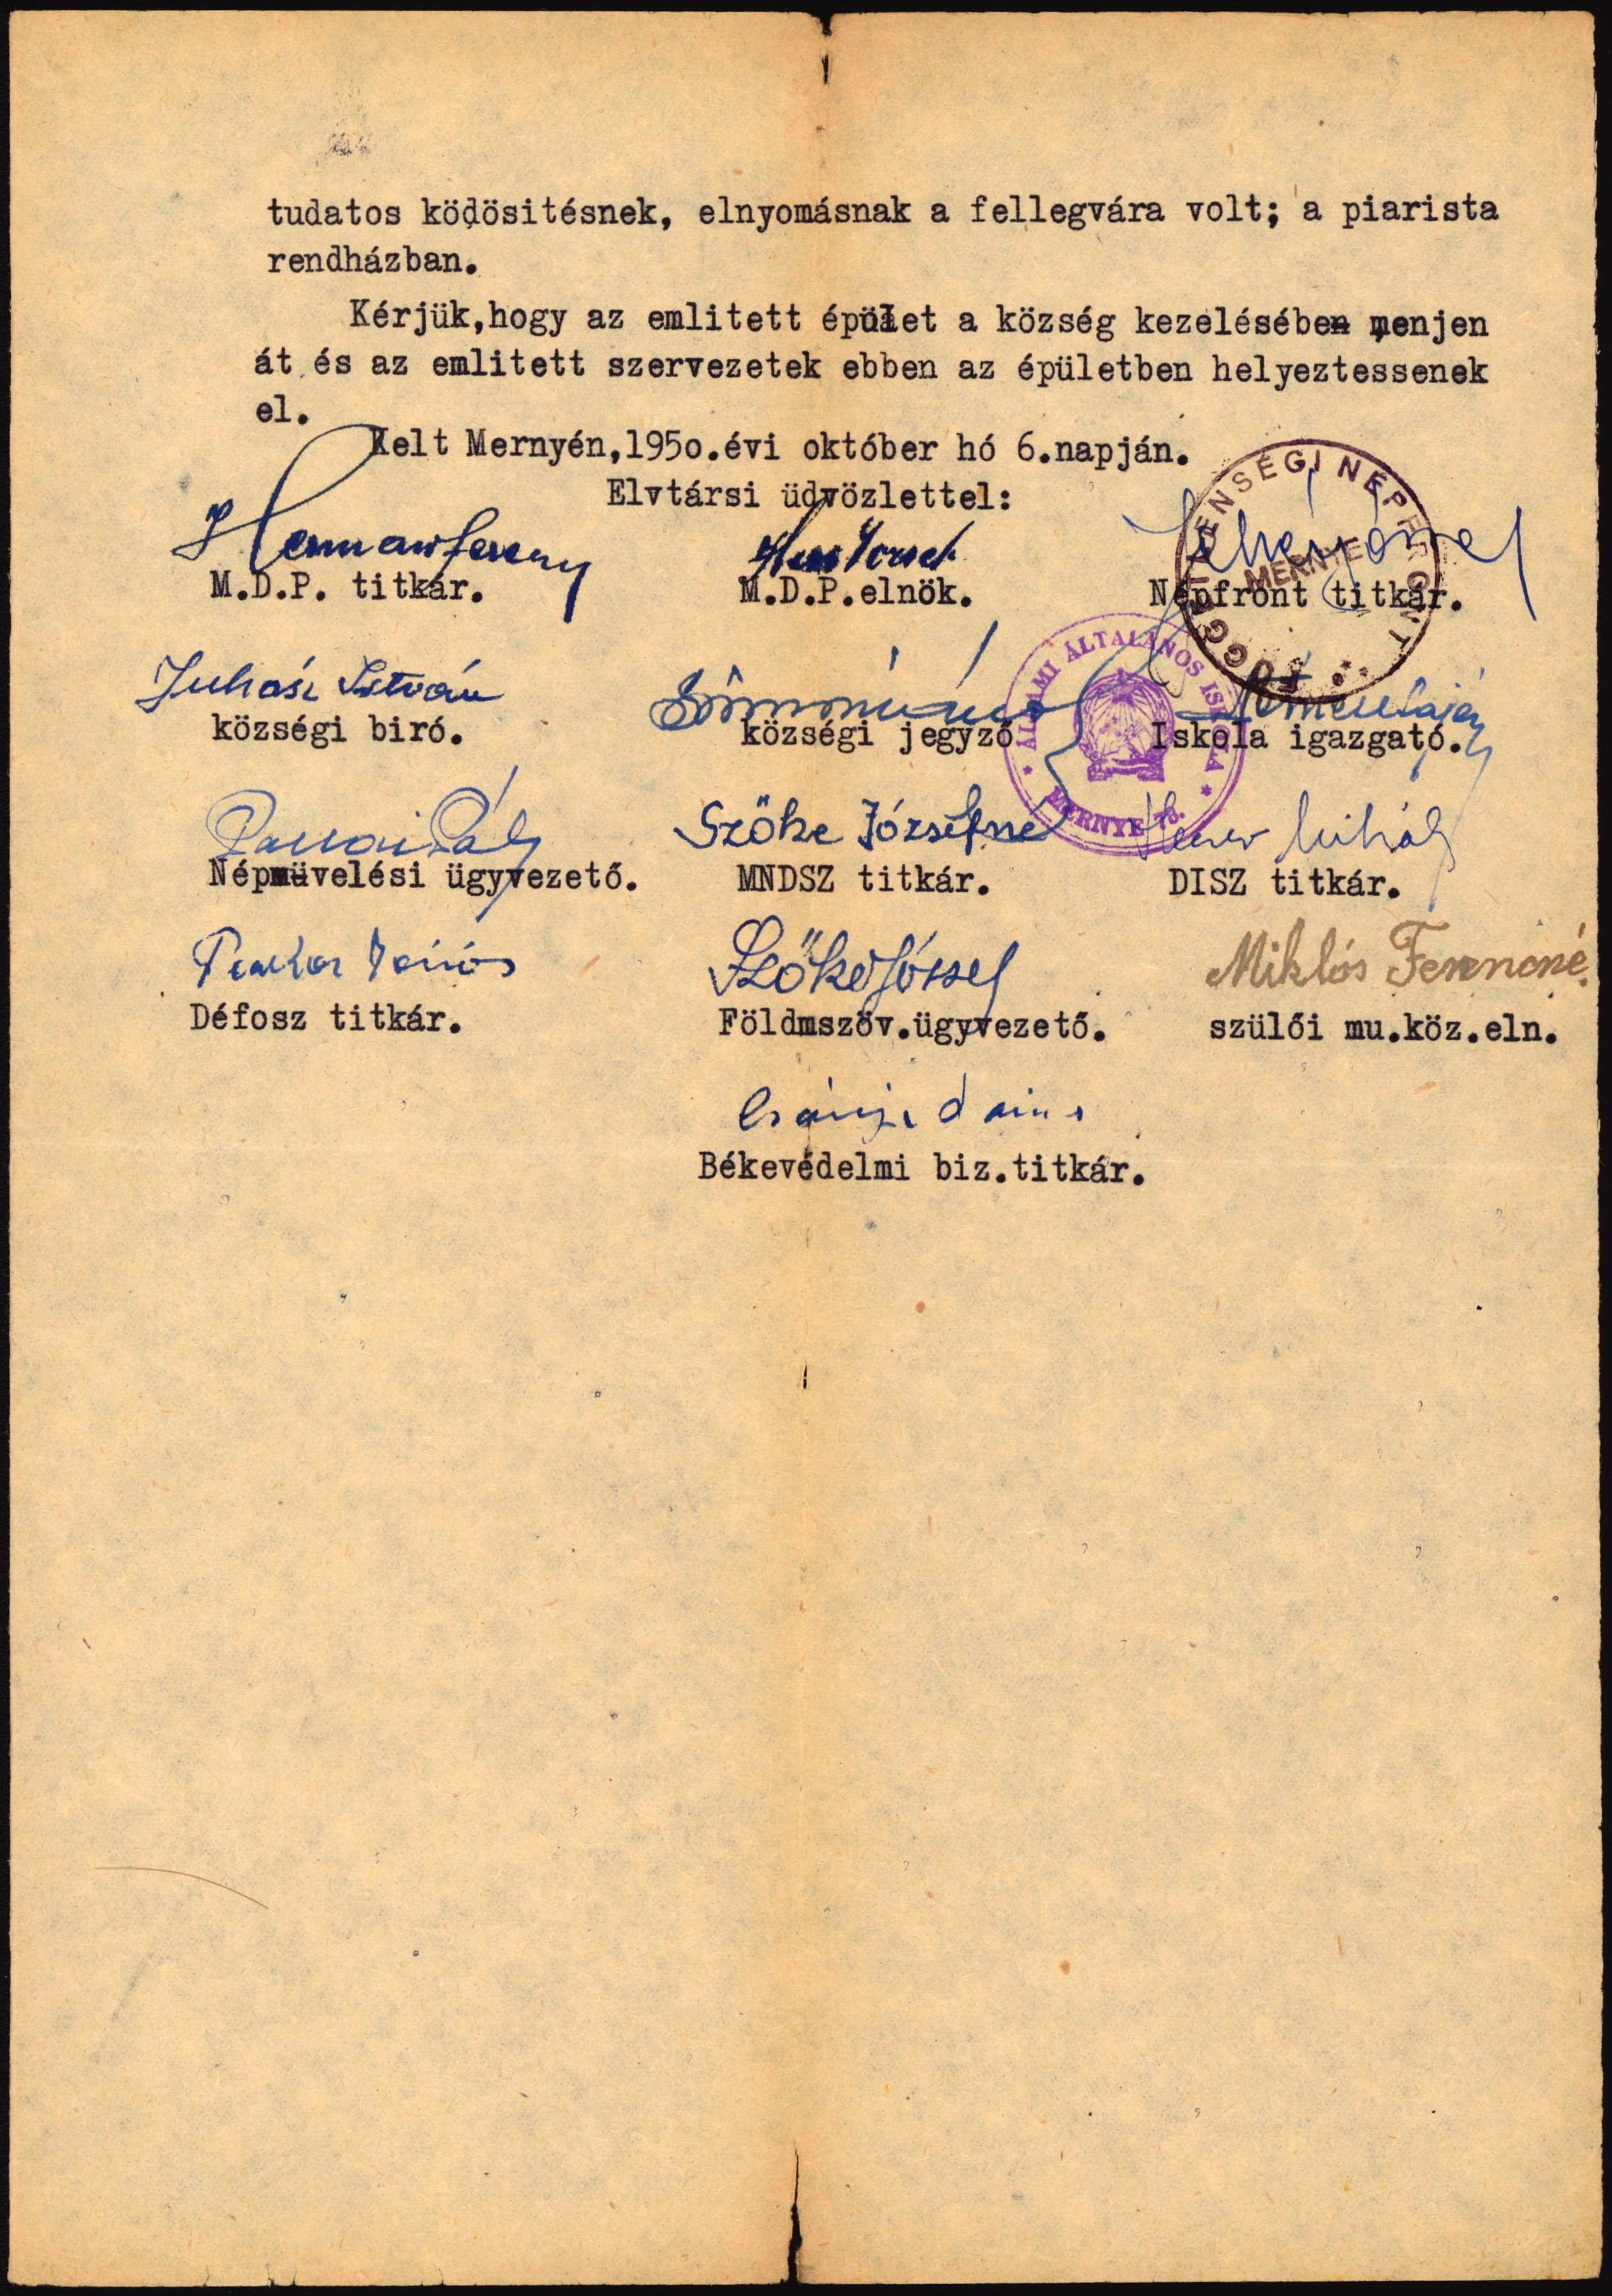 tudatos ködösitésnek, elnyomásnak a fellegvára volt; a piarista
rendházban.
Kérjük,hogy az emlitett épület a község kezelésében menjen
át és az emlitett szervezetek ebben az épületben helyeztessenek
el.
Kelt Mernyén,195o.évi október hó 6.napján.
Elvtársi üdvözlettel:
M.D.P. titkár.
M.D.P.elnök.
Népfront titkár.
MERNYE
Juhász István
községi biró.
községi jegyző
Iskola igazgató.
ÁLLAMI ÁLTALÁNOS ISKOLA
MERNYE
Pál
Népmüvelési ügyvezető.
Szőke Józsefné
MNDSZ titkár.
Mihály
DISZ titkár.
János
Défosz titkár.
Szőke József
Földmszöv.ügyvezető.
Miklós Ferencné.
szülői mu.köz.eln.
Békevédelmi biz.titkár.